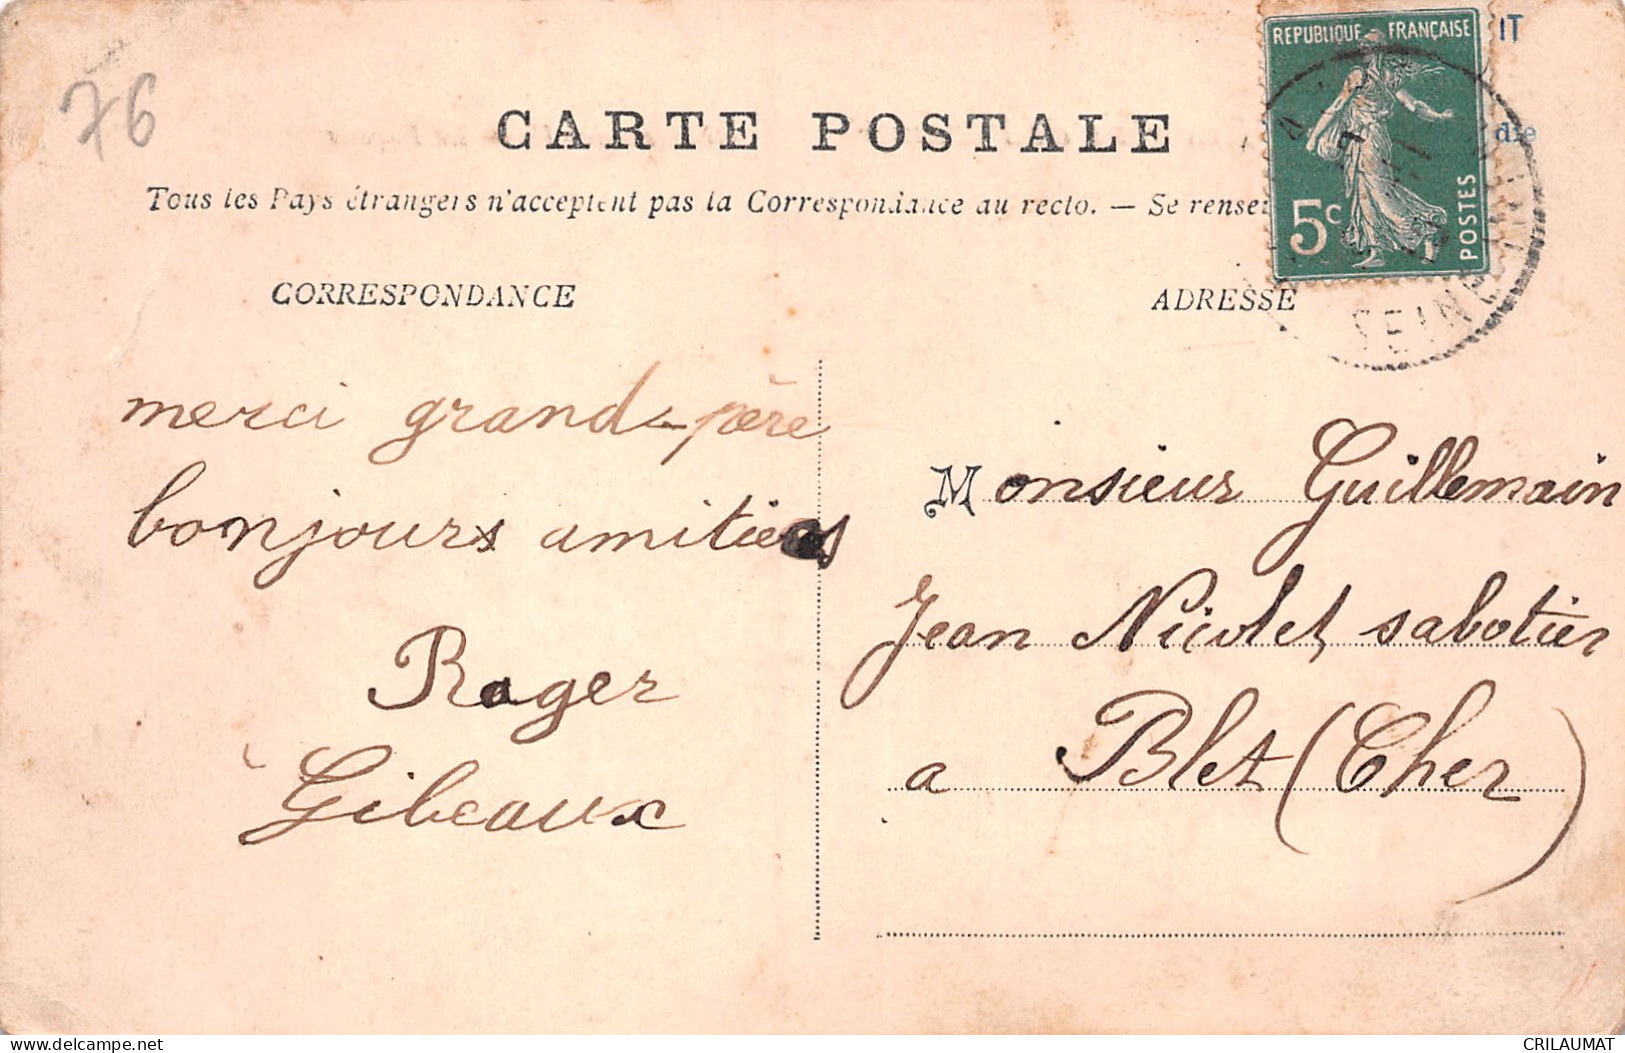 76
IT
REPUBLIQUE FRANÇAISE
5c
POSTES
CARTE POSTALE
die
Tous les Pays étrangers n'acceptent pas la Correspondance au recto. — Se rensei
CORRESPONDANCE
ADRESSE
SEINE
merci grand-père
bonjours amitiés
Roger
Gibeaux
Monsieur Guillemain
Jean Nicolet sabotier
a Blet (Cher)
delcampe.net
CRILAUMAT